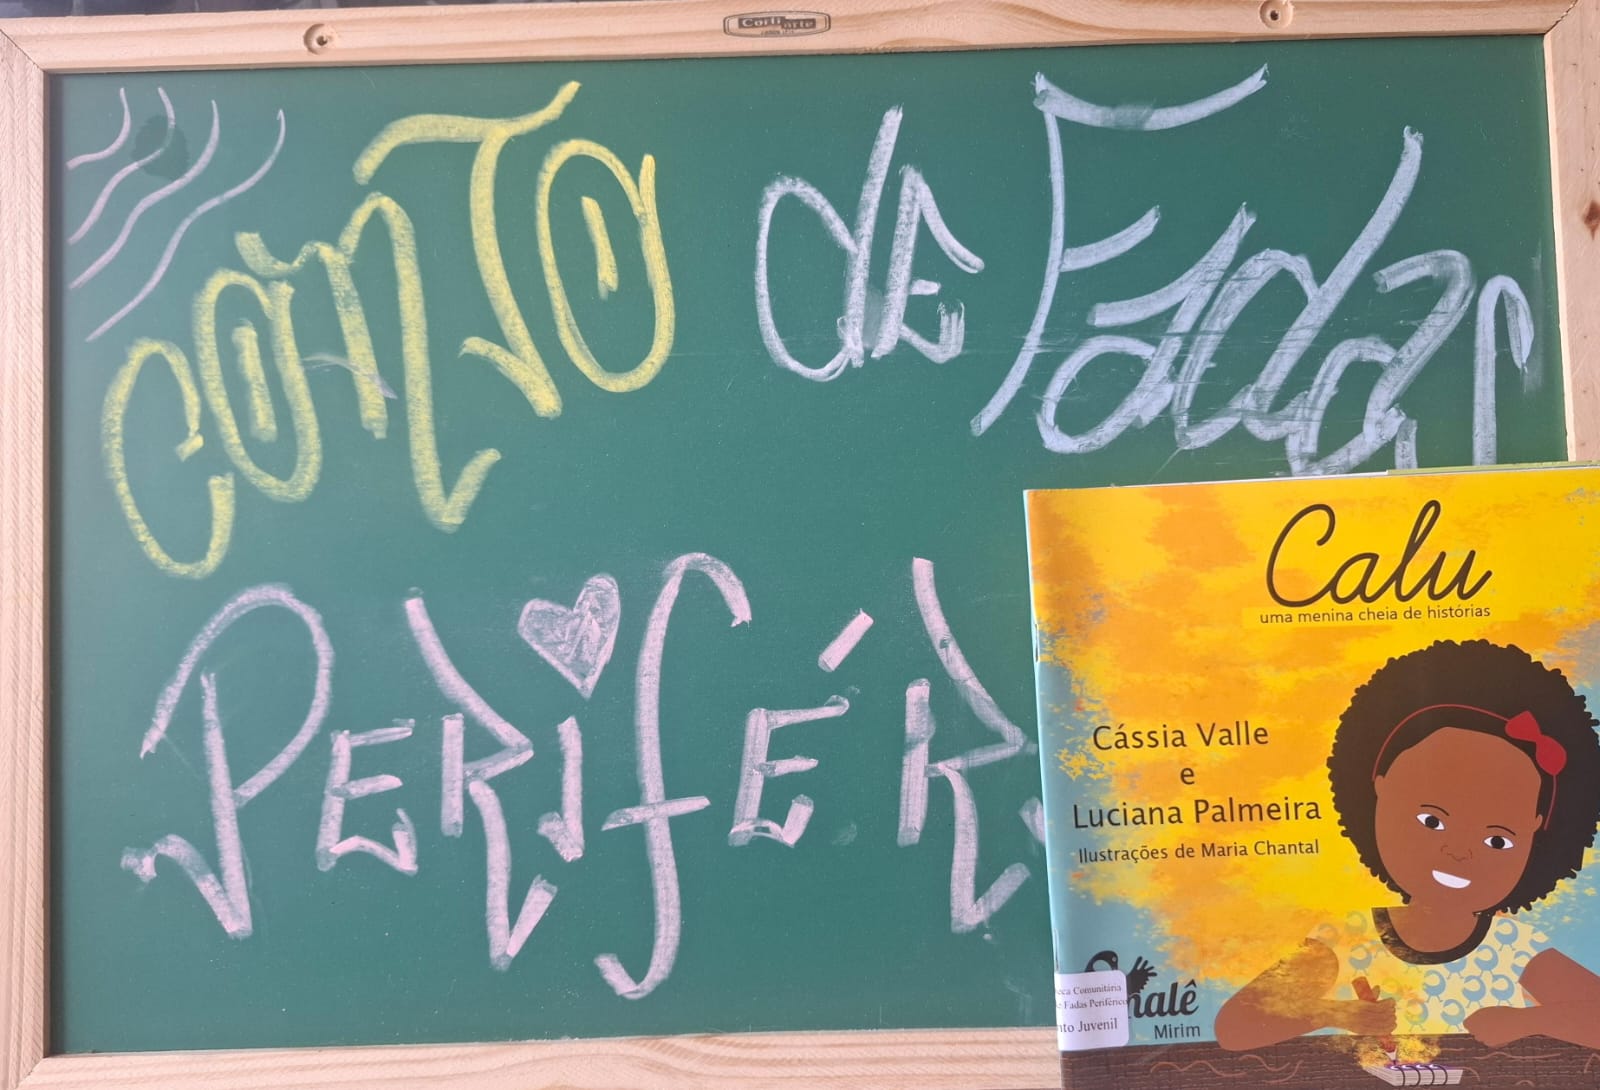 Corti arte
CONTO de Fadas
PERIFÉR
Calu
uma menina cheia de histórias
Cássia Valle
e
Luciana Palmeira
Ilustrações de Maria Chantal
malê
Mirim
eca Comunitária
e Fadas Periférico
nto Juvenil